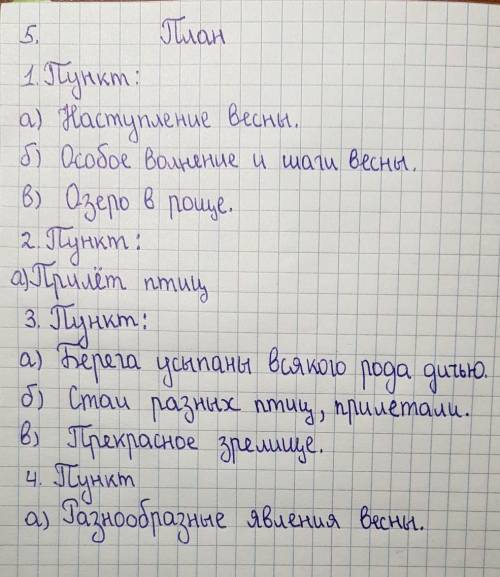 5. План
1. Пункт:
а) Наступление весны.
б) Особое волнение и шаги весны.
в) Озеро в роще.
2. Пункт:
а) Прилёт птиц
3. Пункт:
а) Берега усыпаны всякого рода дичью.
б) Стаи разных птиц, прилетали.
в) Прекрасное зрелище.
4. Пункт
а) Разнообразные явления весны.